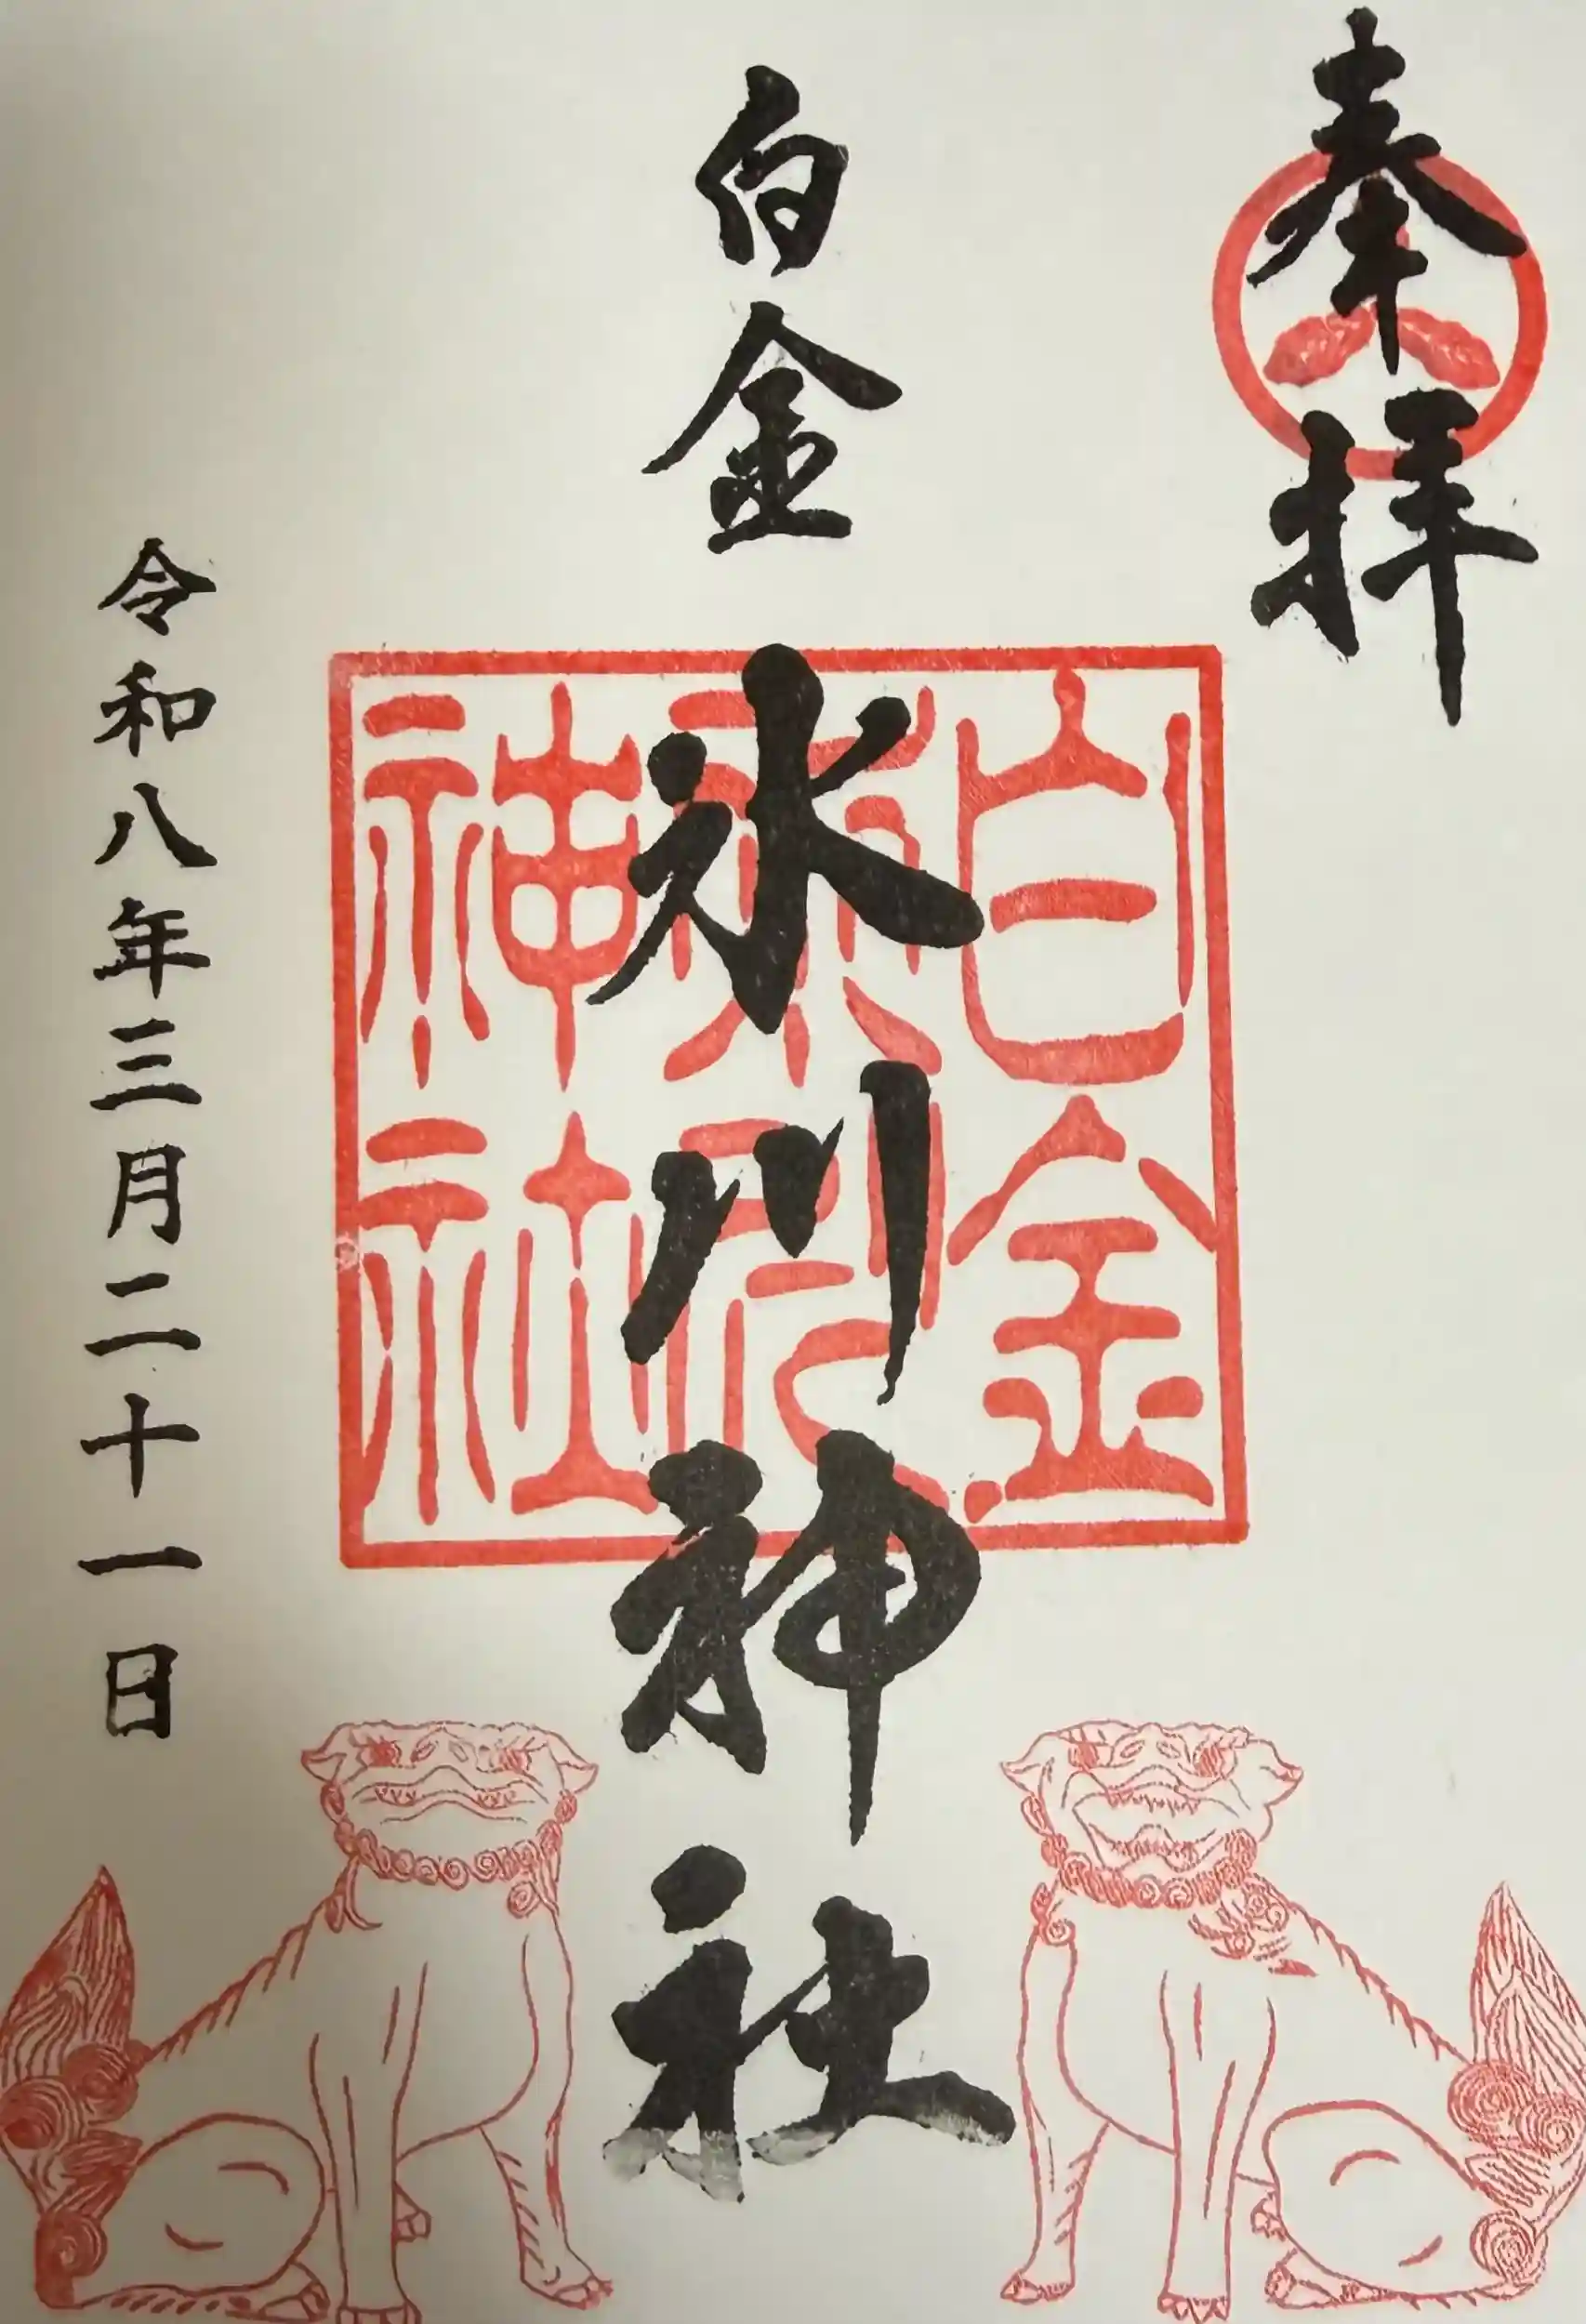 奉拝
白金
氷川神社
令和八年三月二十一日
白金
氷川
神社